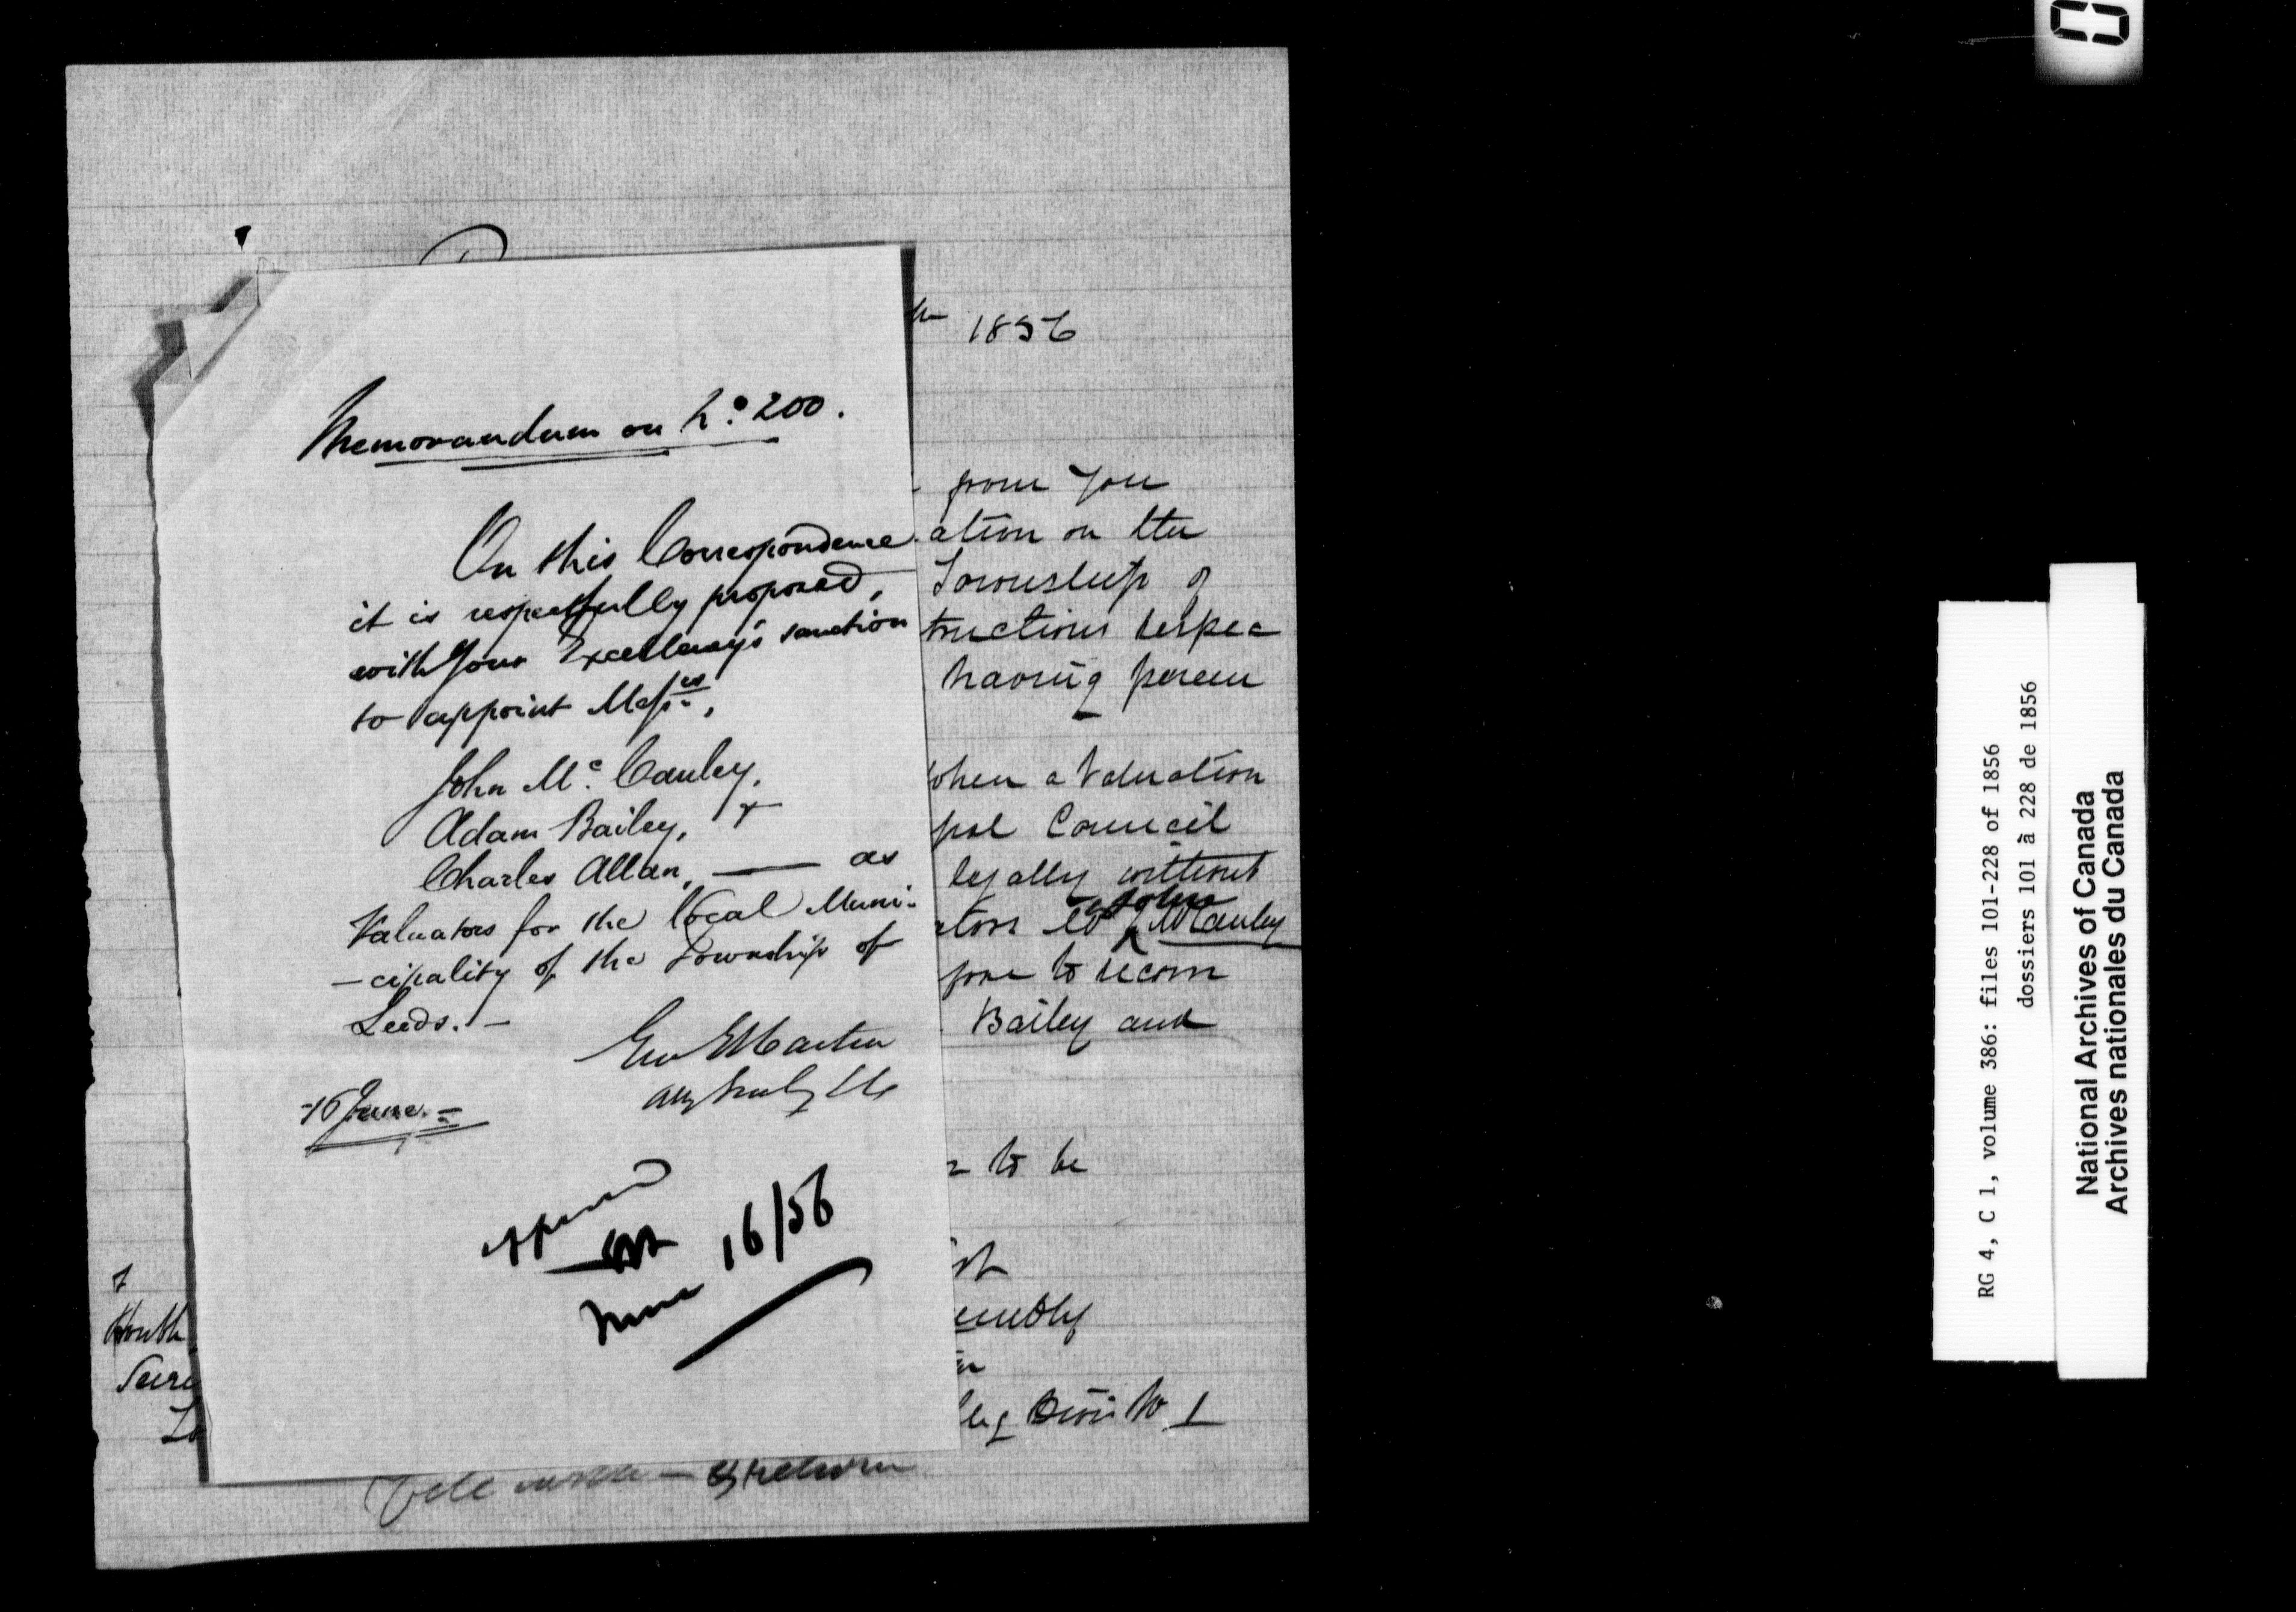 Memorandum on No. 200.
On this Correspondence
it is respectfully proposed,
with Your Excellency's sanction
to appoint Messrs.,
John McCauley,
Adam Bailey, &
Charles Allan, — as
Valuators for the local Muni-
-cipality of the Township of
Leeds. —
Geo E Cartier
Atty
16 June. —
Approved
June 16/56
1856
from You
ation on the
Township of
tructions respec
having
when a Valuation
pal Council
legally without
John
ators to McCauley
Bailey and
to be
embly
Secre
return
RG 4, C 1, volume 386: files 101-228 of 1856
dossiers 101 à 228 de 1856
National Archives of Canada
Archives nationales du Canada